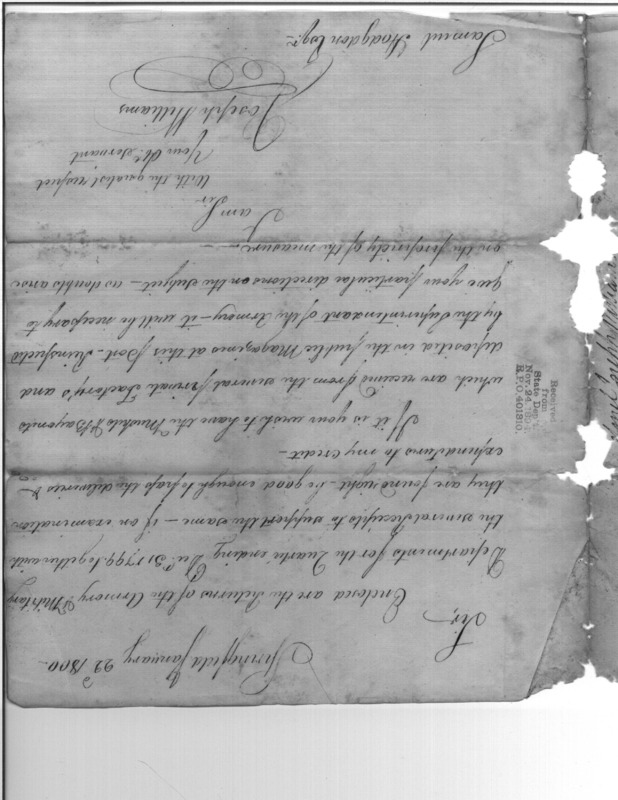 Springfield January 22d 1800.
Sir,
Enclosed are the Returns of the Armory & Military
Departments for the Quarter ending Dec. 31 1799 together with
the several Receipts to support the same — if on examination
they are found right — be good enough to pass the deliveries &
expenditures to my credit —
If it is your wish to have the Muskets & Bayonets
which are received from the several private Factory's and
deposited in the public Magazines at this post — Reinspected
by the Superintendant of the Armory — it will be necessary to
give your particular directions on the subject — as doubts arise
on the propriety of the measure —
I am
Sir
With the greatest respect
Your Ob. Servant
Joseph Williams
Samuel Hodgdon Esqr.
Received
from
State Dep't.
Nov. 24
R.P.O. 401310.